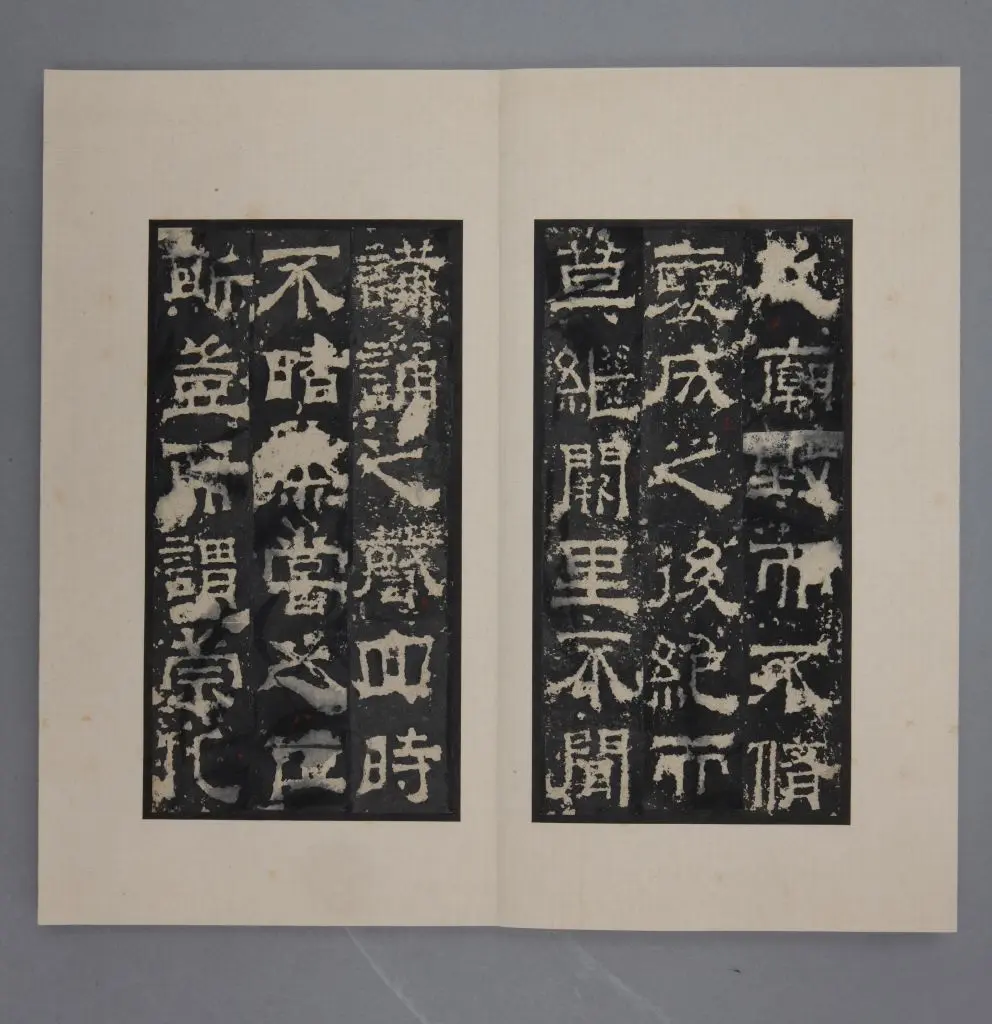 之廟毀而不脩
褒成之後絕而
莫繼闕里不聞
講誦之聲四時
不睹烝嘗之位
斯豈所謂崇礼